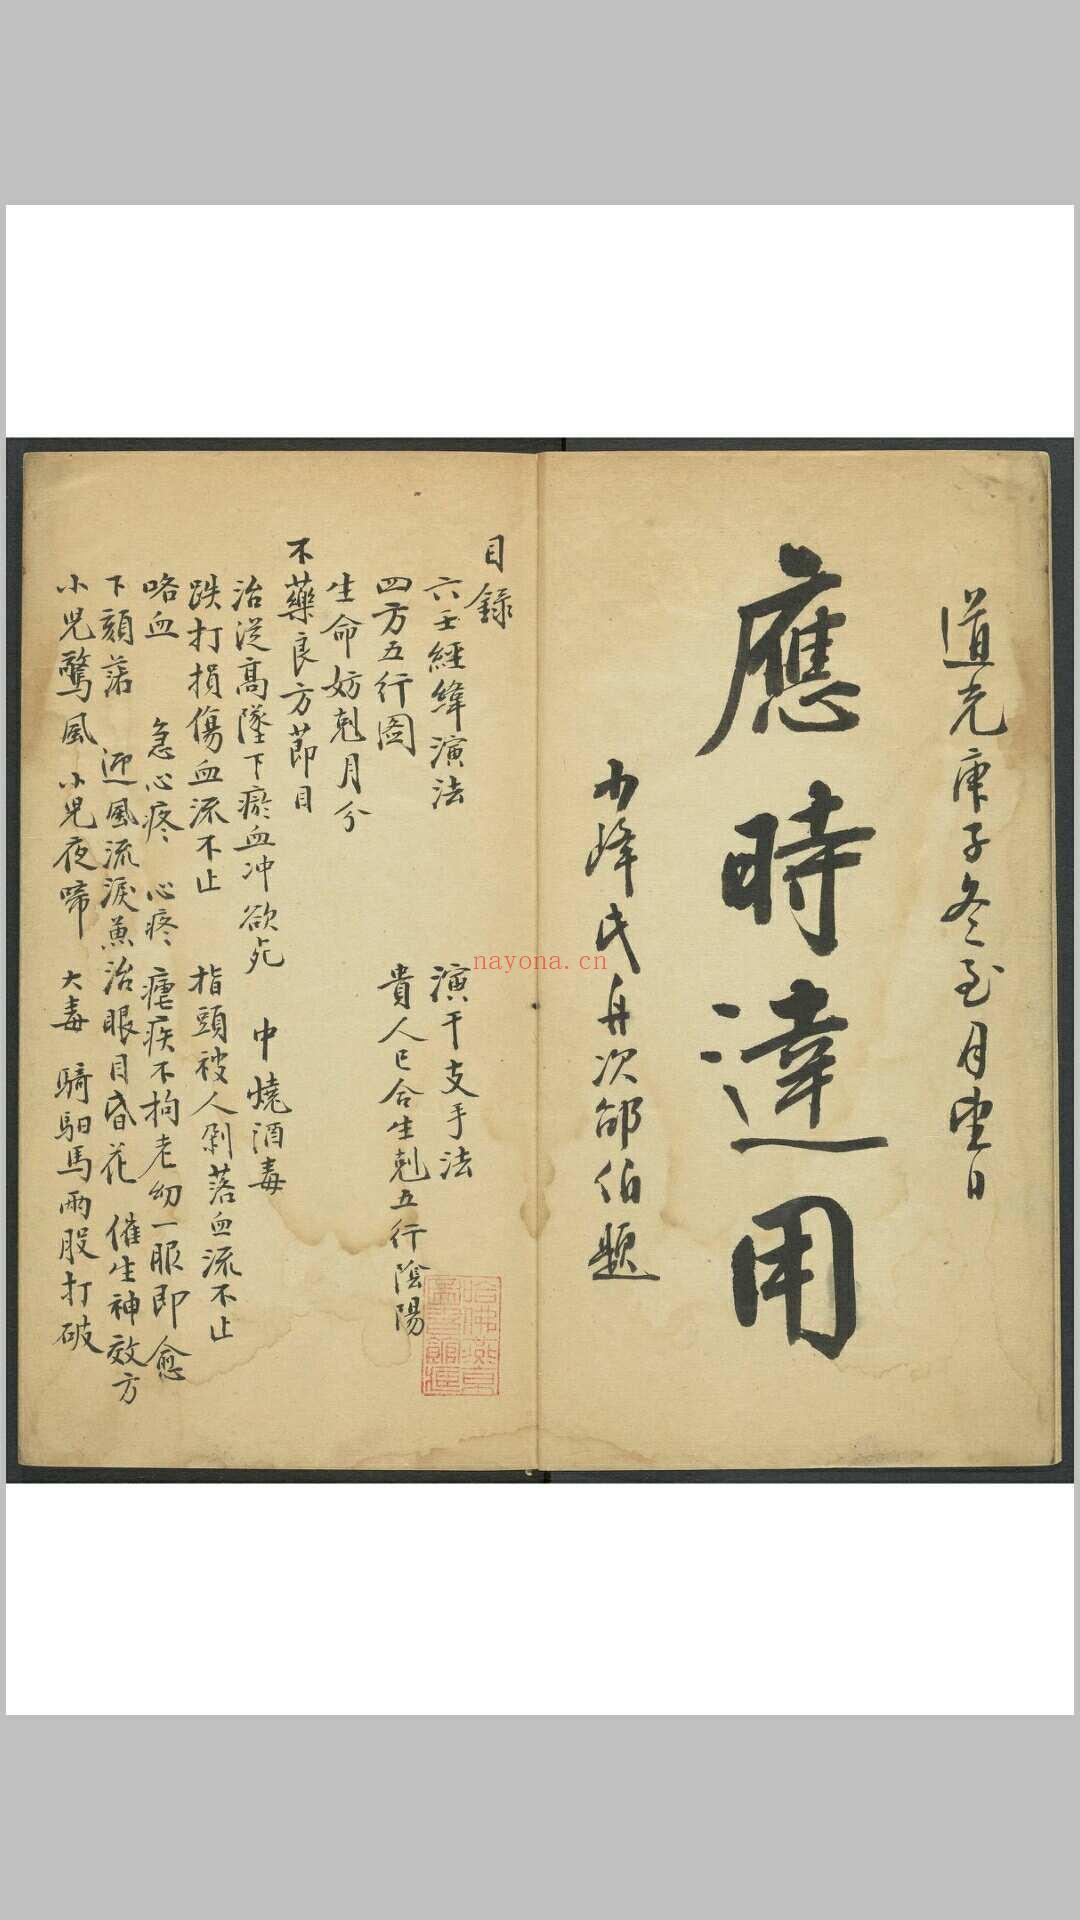 道光庚子冬至月望日
應時達用
小峰氏舟次邰伯題
目錄
六壬經緯演法 演干支手法
四方五行圖 貴人已合生剋五行陰陽
生命妨剋月分
不藥良方節目
治從高墜下瘀血冲欲死 中燒酒毒
跌打損傷血流不止 指頭被人剁落血流不止
咯血 急心疼 心疼 瘧疾不拘老幼一服即愈
下頦落 迎風流淚兼治眼目昏花 催生神效方
小児驚風 小児夜啼 大毒 騎馹馬兩股打破
哈佛燕京
圖書館藏
nayona.cn